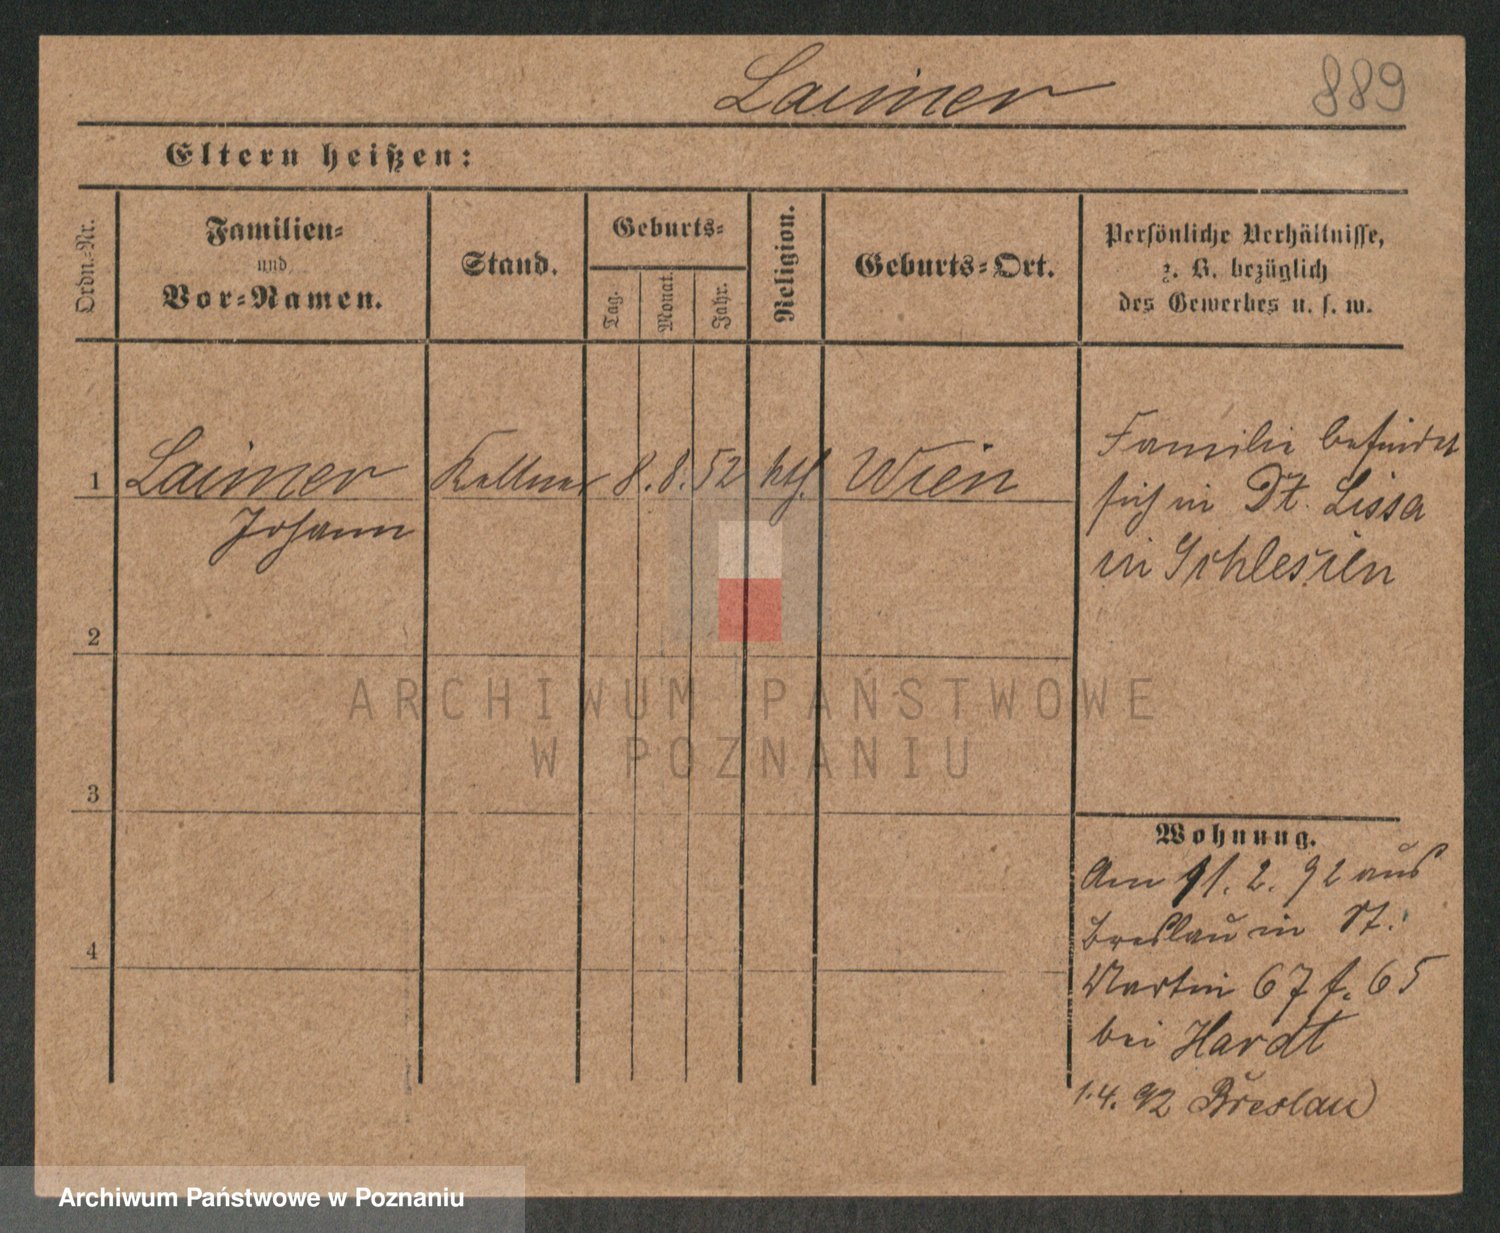 Laimer
889
Eltern heißen:
Ordn.-Nr.
Familien-
und
Vor-Namen.
Stand.
Geburts-
Tag.
Monat.
Jahr.
Religion.
Geburts-Ort.
Persönliche Verhältnisse,
z. B. bezüglich
des Gewerbes u. s. w.
1 Laimer Kellner 8. 8. 52 kth. Wien
Johann
Familie befindet
sich in Dt. Lissa
in Schlesien
2
3
4
Wohnung.
Am 11. 2. 92 aus
Breslau in St.
Martin 67 f. 65
bei Hardt
1.4. 92 Breslau
ARCHIWUM PAŃSTWOWE
W POZNANIU
Archiwum Państwowe w Poznaniu